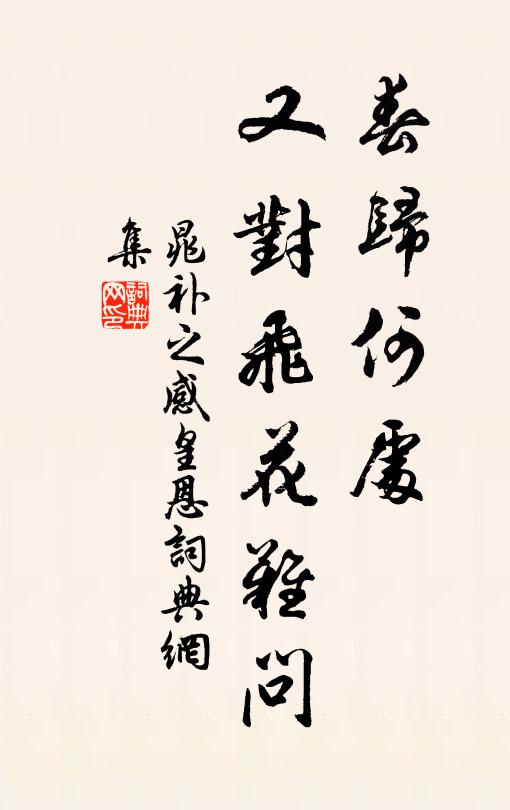 春歸何處
又對飛花難問
晁补之感皇恩詞典網
集
詞典
网印